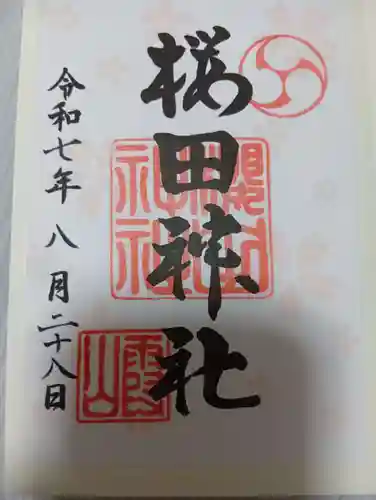 桜田神社
令和七年 八月二十八日
櫻田神社
霞山